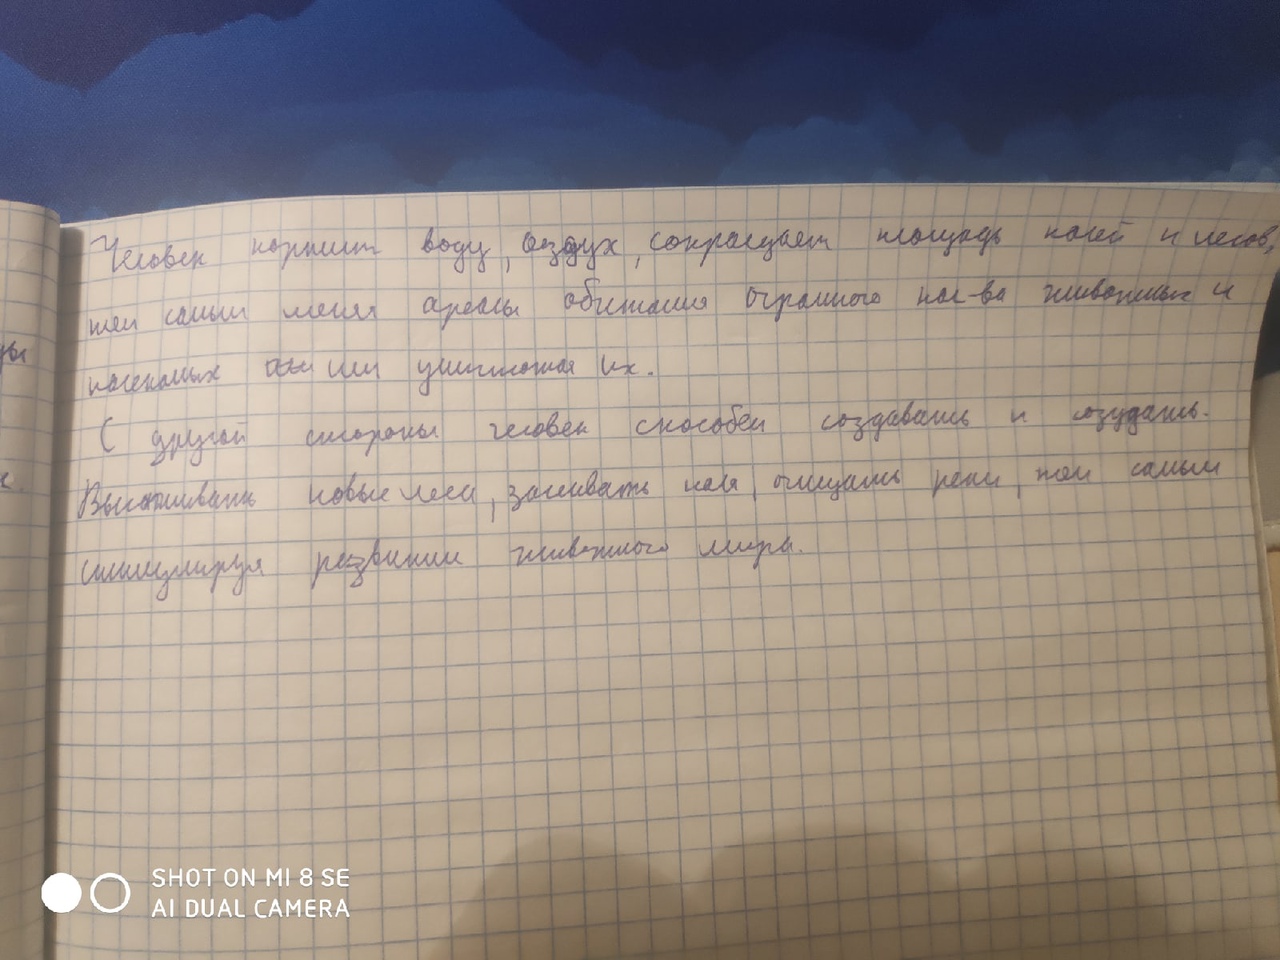 Человек портит воду, воздух, сокращает площадь полей и лесов,
тем самым меняя ареалы обитания огромного кол-ва животных и
насекомых или уничтожая их.
С другой стороны человек способен создавать и созидать.
Высаживать новые леса, засеивать поля, очищать реки, тем самым
стимулируя развитии животного мира.
SHOT ON MI 8 SE
AI DUAL CAMERA